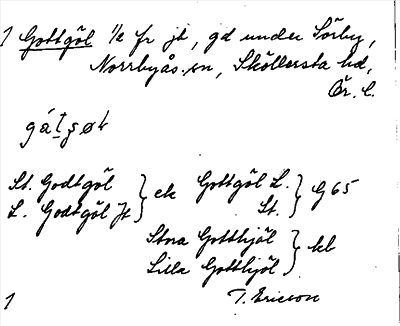 1 Gottgöl 1/2 fr jb, gd under Sörby,
Norrbyås sn, Sköllersta hd,
Ör. l.
St. Godtgöl
L. Godtgöl Jt } ek Gottgöl L.
St. } G 65
Stora Gotthjöl
Lilla Gotthjöl } kb
T. Ericson
1